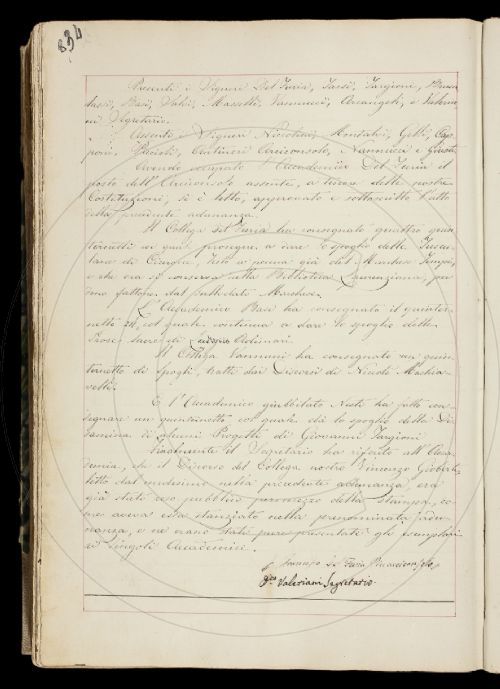 834
Presenti i Signori Del Furia, Tassi, Targioni,
Basi, Valeriani
Segretario.
Assenti i Signori Niccolini, Montalvi, Gelli, Cap-
poni, Arciconsolo, Nannucci e Giusti
Avendo occupato l'Accademico Del Furia il
posto dell'Arciconsolo assente, a tenore delle nostre
Costituzioni, si è letto, approvato e sottoscritto l'atto
della precedente adunanza.
Il Collega Del Furia ha consegnato quattro quin-
ternetti coi quali prosegue a dare lo spoglio delle Tuscu-
lane di Cicerone, già del Marchese
e che ora si conserva nella Biblioteca Laurenziana,
dono fattone dal suddetto Marchese.
L'Accademico Basi ha consegnato il quinter-
netto col quale continua a dare lo spoglio delle
Prose Sacre di Luigi
Il Collega Vannucci ha consegnato un quin-
ternetto di spogli tratti dai Discorsi di Niccolò Machia-
velli.
E l'Accademico giubbilato Nesti ha fatto con-
segnare un quinternetto col quale dà lo spoglio della Di-
samina di alcuni Progetti di Giovanni Targioni
Finalmente il Segretario ha riferito all'Acca-
demia, che il Discorso del Collega nostro Vincenzo Gioberti,
letto dal medesimo nella precedente adunanza, era
già stato reso pubblico per mezzo della stampa, co-
me aveva essa stanziato nella prenominata adu-
nanza, e ne erano stati pure presentati gli esemplari
ai singoli Accademici.
Francesco Del Furia
Valeriani Segretario